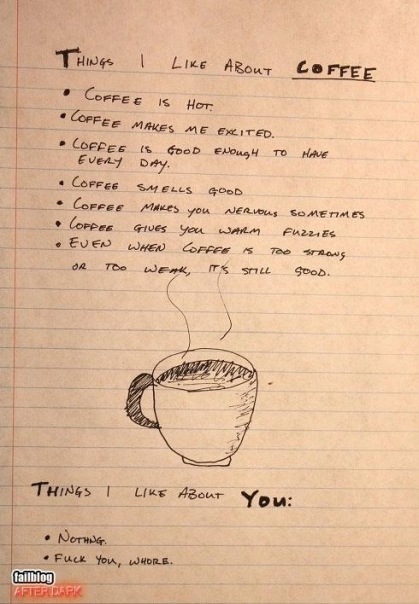 THINGS I LIKE ABOUT COFFEE
• COFFEE IS HOT.
• COFFEE MAKES ME EXCITED.
• COFFEE IS GOOD ENOUGH TO HAVE
EVERY DAY.
• COFFEE SMELLS GOOD
• COFFEE MAKES YOU NERVOUS SOMETIMES
• COFFEE GIVES YOU WARM FUZZIES
• EVEN WHEN COFFEE IS TOO STRONG
OR TOO WEAK, IT'S STILL GOOD.
THINGS I LIKE ABOUT YOU:
• NOTHNG.
• FUCK YOU, WHORE.
failblog
AFTER DARK